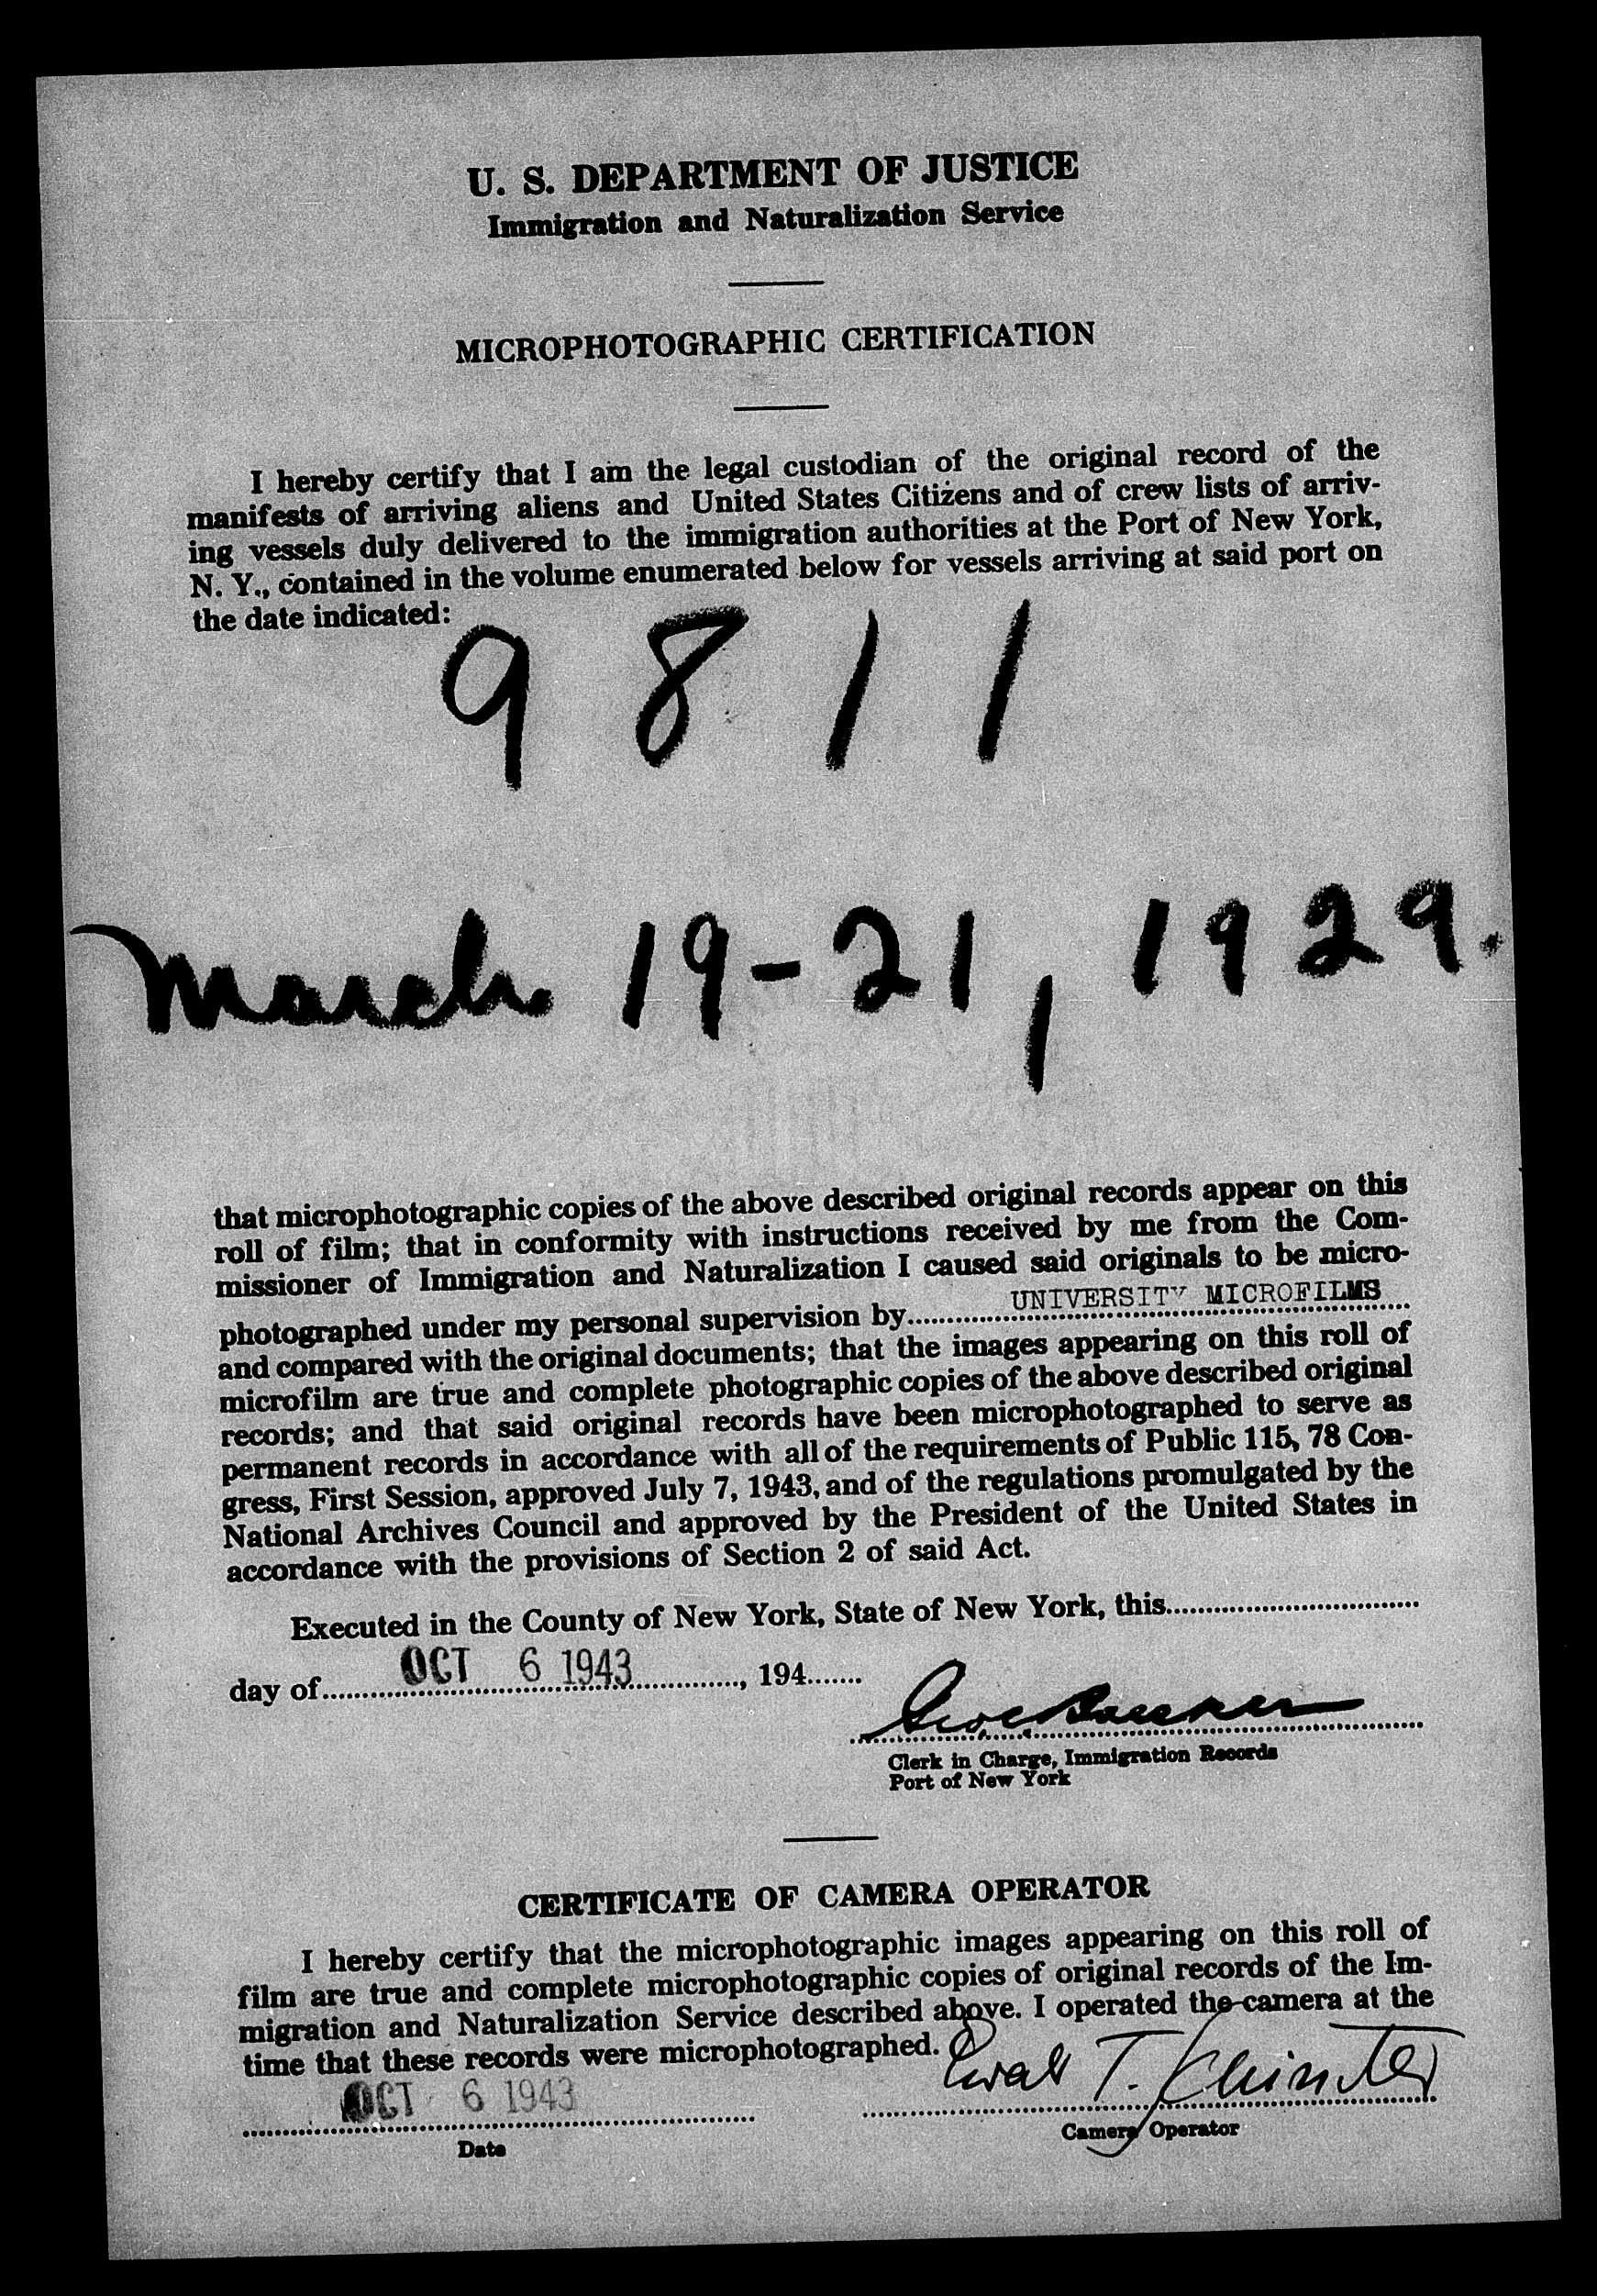 U. S. DEPARTMENT OF JUSTICE
Immigration and Naturalization Service
MICROPHOTOGRAPHIC CERTIFICATION
I hereby certify that I am the legal custodian of the original record of the
manifests of arriving aliens and United States Citizens and of crew lists of arriv-
ing vessels duly delivered to the immigration authorities at the Port of New York,
N. Y., contained in the volume enumerated below for vessels arriving at said port on
the date indicated:
9811
March 19-21, 1929.
that microphotographic copies of the above described original records appear on this
roll of film; that in conformity with instructions received by me from the Com-
missioner of Immigration and Naturalization I caused said originals to be micro-
photographed under my personal supervision by UNIVERSITY MICROFILMS
and compared with the original documents; that the images appearing on this roll of
microfilm are true and complete photographic copies of the above described original
records; and that said original records have been microphotographed to serve as
permanent records in accordance with all of the requirements of Public 115, 78 Con-
gress, First Session, approved July 7, 1943, and of the regulations promulgated by the
National Archives Council and approved by the President of the United States in
accordance with the provisions of Section 2 of said Act.
Executed in the County of New York, State of New York, this
day of OCT 6 1943, 194
Clerk in Charge, Immigration Records
Port of New York
CERTIFICATE OF CAMERA OPERATOR
I hereby certify that the microphotographic images appearing on this roll of
film are true and complete microphotographic copies of original records of the Im-
migration and Naturalization Service described above. I operated the camera at the
time that these records were microphotographed.
OCT 6 1943
T.
Date
Camera Operator